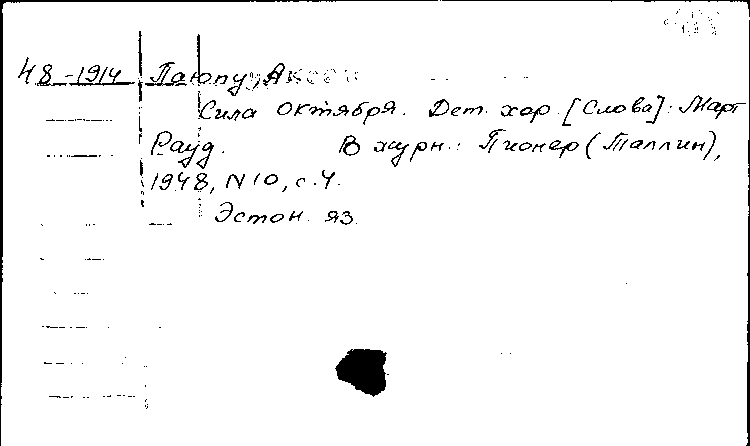 48-1914 Паюпу, Аксел
Сила Октября. Дет. хор. [Слова]: Март
Рауд. В журн.: Пионер (Таллин),
1948, N10, с.4.
Эстон. яз.